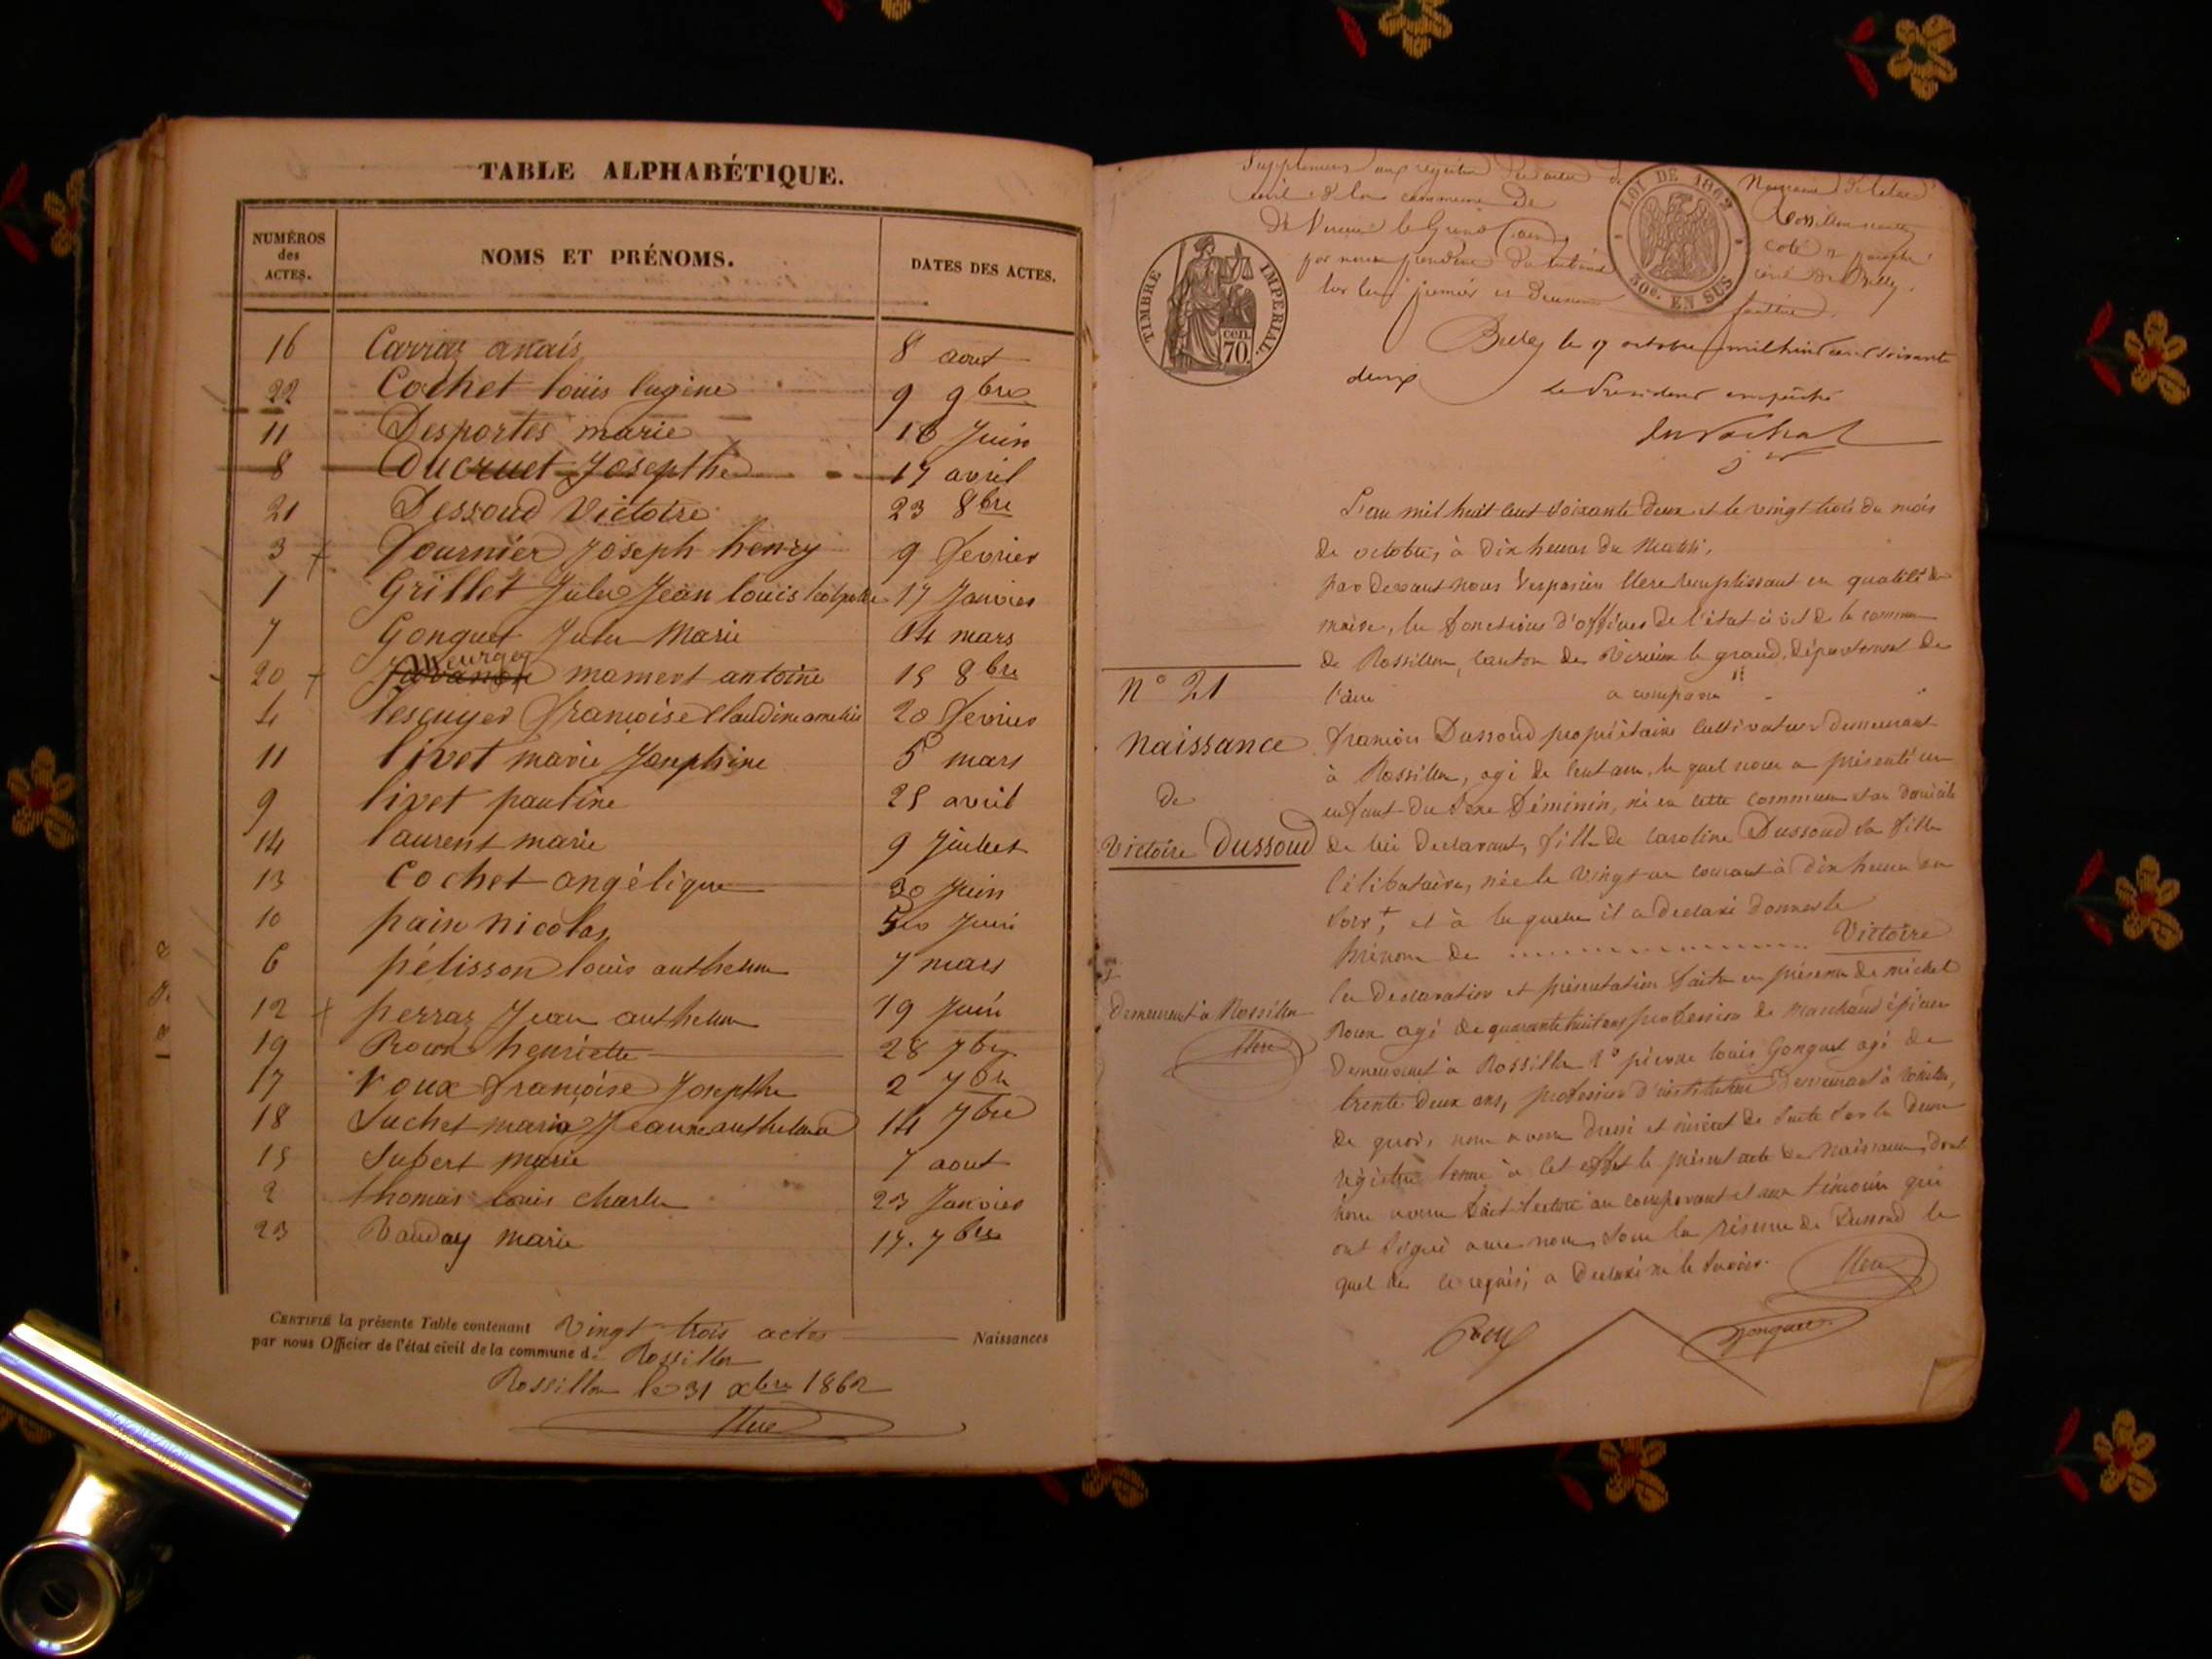 TABLE ALPHABÉTIQUE.
NUMÉROS des ACTES. NOMS ET PRÉNOMS. DATES DES ACTES.
16 Carraz anais 8 aout
22 Cochet louis Eugène 9 9bre
11 Desportes marie 16 Juin
8 Ducruet Josepthe 17 avril
21 Dessoud Victoire 23 8bre
3 Fournier Joseph henry 9 fevrier
1 Grillet Jules Jean louis 17 Janvier
7 Gonguet Jules Marie 14 mars
20 mamert antoine 15 8bre
4 lescuyer françoise Claudine 20 fevrier
11 livet marie Josephine 5 mars
9 livet pauline 25 avril
14 laurent marie 9 Juillet
13 Cochet angélique 30 Juin
10 pain nicolas Juin
6 pélisson louis anthelme 7 mars
12 perraz Jean anthelme 19 Juin
19 Roux henriette 28 7bre
17 roux françoise Josepthe 2 7bre
18 Suchet maria Jeanne anthelma 14 7bre
15 Subert marie 7 aout
2 thomas louis charles 23 Janvier
23 Vauday marie 17. 7bre
CERTIFIÉ la présente Table contenant Vingt trois actes Naissances
par nous Officier de l'état civil de la commune de Rossillon
Rossillon le 31 xbre 1862
LOI DE 1862
50c. EN SUS
TIMBRE IMPERIAL.
cen. 70.
civil de la commune de
par nous
Belley le 17 octobre mil huit cent soixante
deux
Le Président empêché
L'an mil huit cent soixante deux et le vingt trois du mois
de octobre, à dix heures du matin,
par devant nous remplissant en qualité de
maire, les fonctions d'officier de l'état civil de la commune
de Rossillon, canton de Virieu le grand, département de
l'ain a comparu
N° 21
Naissance
de
Victoire Dussoud
françois Dussoud propriétaire cultivateur demeurant
à Rossillon, agé de ans, le quel nous a présenté un
enfant du sexe féminin, né en cette commune et au domicile
de lui declarant, fille de Caroline Dussoud sa fille
célibataire, née le vingt un courant à dix heures du
soir, et à la quelle il a declaré donner le
prénom de Victoire
les declaration et présentation faites en présence de michel
Demeurant à Rossillon
Roux agé de quarante huit ans profession de marchand épicier
demeurant à Rossillon 2° pierre louis Gonguet agé de
trente deux ans, profession d'instituteur demeurant à Rossillon,
de quoi, nous avons dressé et inscrit de suite sur les deux
régistres tenus à cet effet le présent acte de naissance, dont
nous avons fait lecture au comparant et aux témoins qui
ont signé avec nous, sous la réserve de Dussoud le
quel de ce requis, a declaré ne le savoir.
Roux
Gonguet